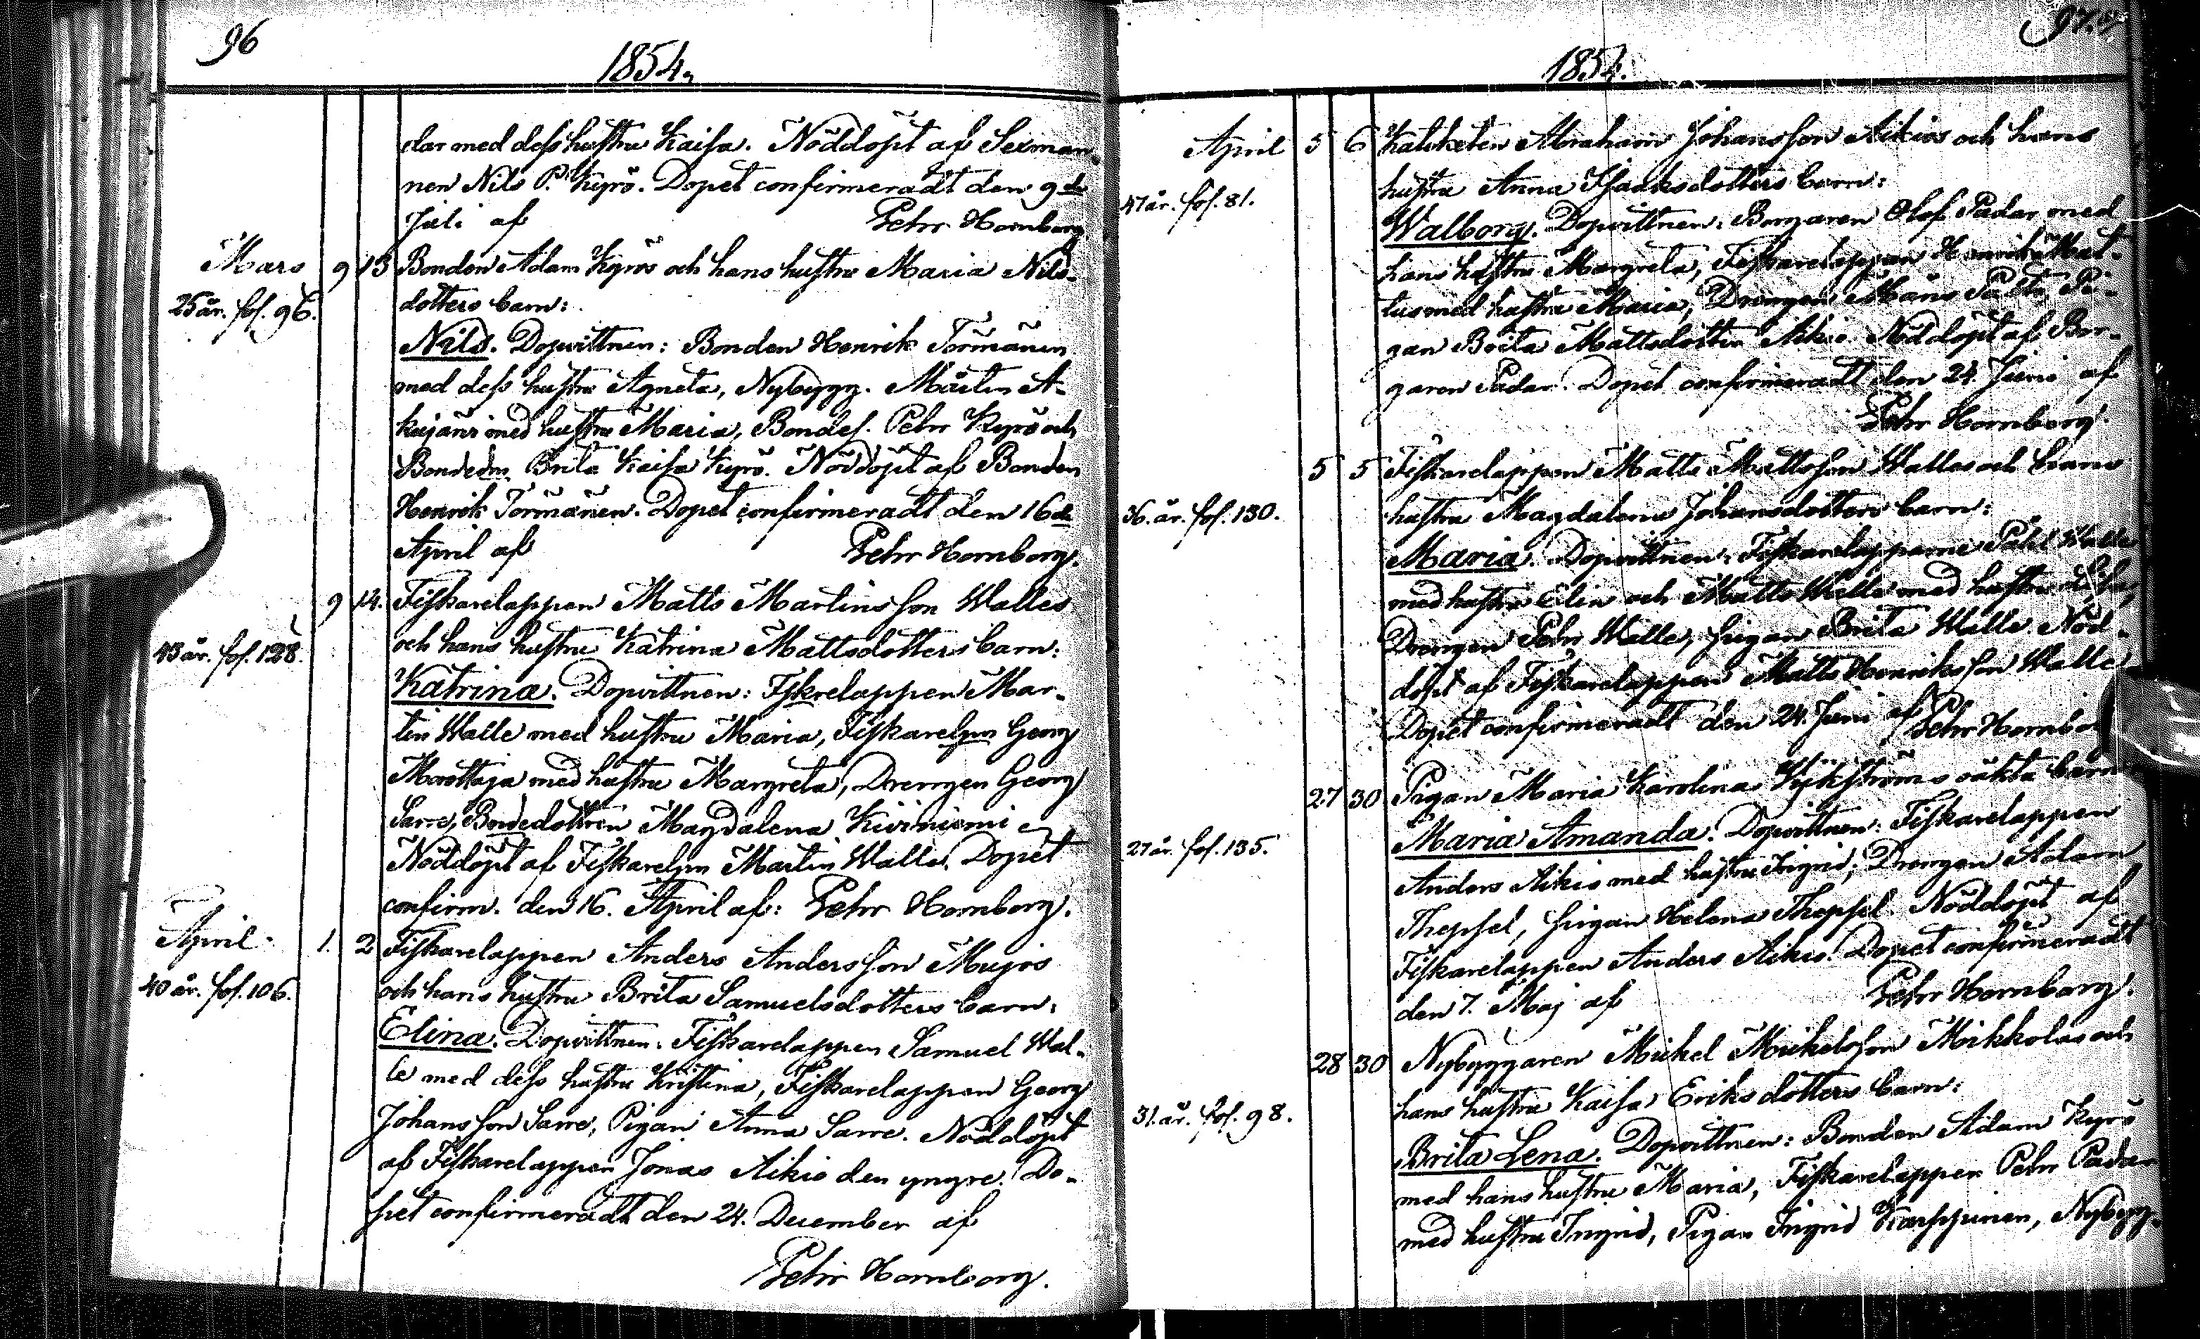 96
1854.
dar med dess hustru Kaisa. Nöddöpt af Sexman-
nen Nils P. Kyrö. Dopet confirmeradt den 9de
Juli af Pehr Hornborg.
Mars 9 13 Bonden Adam Kyrös och hans hustru Maria Nils-
25 år. fol. 96. dotters barn:
Nils. Dopvittnen: Bonden Henrik Törmänen
med dess hustru Agneta, Nybygg. Mårten A-
kujärvi med hustru Maria, Bondes. Pehr Kyrö och
Bondedn Brita Kaisa Kyrö. Nöddöpt af Bonden
Henrik Törmänen. Dopet confirmeradt den 16de
April af Pehr Hornborg.
9 14. Fiskarelappen Matts Martinsson Walles
43 år. fol. 128. och hans hustru Katrina Mattsdotters barn:
Katrina. Dopvittnen: Fiskrelappen Mar-
tin Walle med hustru Maria, Fiskarelpn Georg
Morottaja med hustru Margreta, Drengen Georg
Sarre, Bondedottren Magdalena Kiviniemi
Nöddöpt af Fiskarelpn Martin Walle. Dopet
confirm. den 16. April af: Pehr Hornborg.
April 1. 2 Fiskarelappen Anders Andersson Mujos
40 år. fol. 106. och hans hustru Brita Samuelsdotters barn:
Elina. Dopvittnen: Fiskarelappen Samuel Wal-
le med dess hustru Kristina, Fiskarelappen Georg
Johansson Sarre, Pigan Anna Sarre. Nöddöpt
af Fiskarelappen Jonas Aikio den yngre. Do-
pet confirmeradt den 24. December af
Pehr Hornborg.
97.
1854.
April 5 6 Kateketen Abraham Johansson Aikios och hans
47 år. fol. 81. hustru Anna Isaaksdotters barn:
Walborg. Dopvittnen: Borgaren Olof Padar med
hans hustru Margreta, Fiskarelappen Henrik Mat-
tus med hustru Maria, Drengen Måns Padar, Pi-
gan Brita Mattsdotter Aikio. Nöddöpt af Bor-
garen Padar. Dopet confirmeradt den 24. Juni af
Pehr Hornborg.
5 5 Fiskarelappen Matts Mattsson Walles och hans
36. år. fol. 130. hustru Magdalena Johansdotters barn:
Maria. Dopvittnen: Fiskarelapparne Påhl Walle
med hustru Elen och Matts Walle med hustru
Drengen Pehr Walle, pigan Brita Walle. Nöd-
döpt af Fiskarelappen Matts Henriksson Walle
Dopet confirmeradt den 24. Juni af Pehr Hornbo
27 30 Pigan Maria Karolina oäkta barn
27 år. fol. 135. Maria Amanda. Dopvittnen: Fiskarelappen
Anders Aikio med hustru Ingrid, Drengen Adam
Thepsel, pigan Helena Thepsel. Nöddöpt af
Fiskarelappen Anders Aikio. Dopet confirmeradt
den 7. Maj af Pehr Hornborg.
28 30 Nybyggaren Mickel Mickelsson Mikkolas och
31. år. fol. 98. hans hustru Kaisa Eriksdotters barn:
Brita Lena. Dopvittnen: Bonden Adam Kyrö
med hans hustru Maria, Fiskarelappen Pehr Padar
med hustru Ingrid, Pigan Ingrid Karppinen, Nybygg-